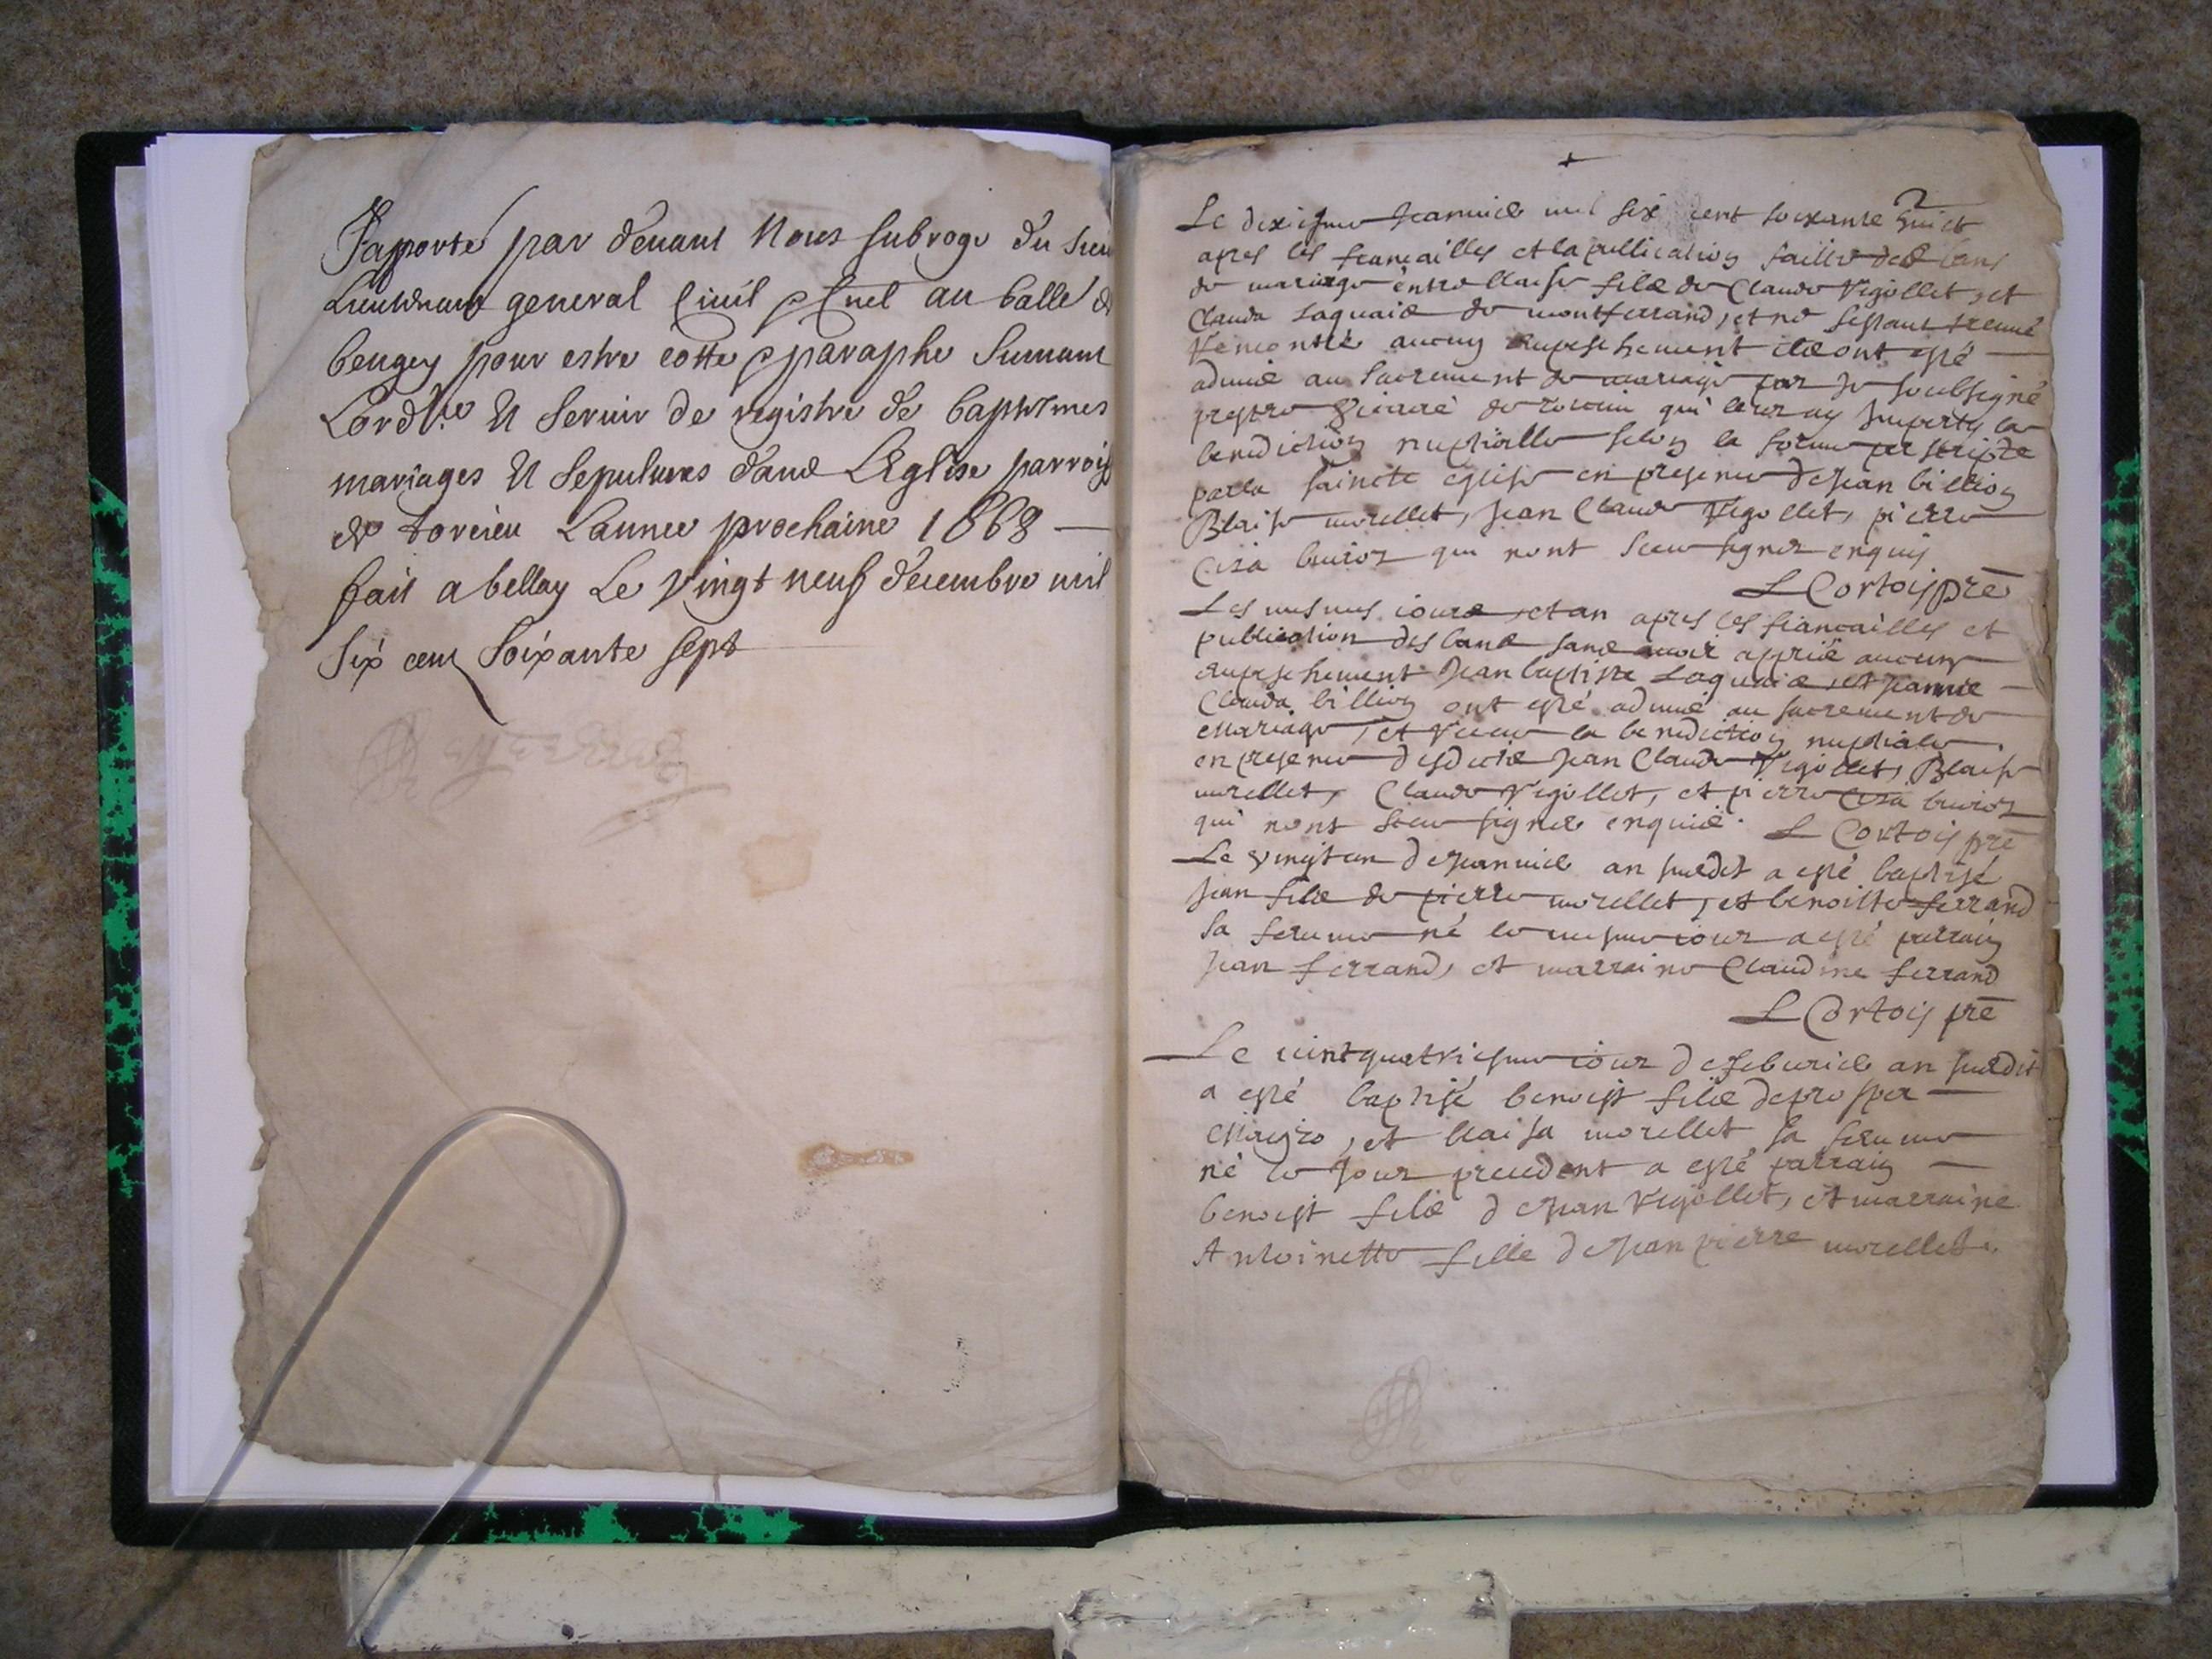 Raporté par deuant Nous subrogé du sieu
Lieutenant general Ciuil au balle
beugey pour estre cotté paraphe Suiuant
Lordce Et Seruir de registre de baptesmes
mariages Et Sepulures dans LEglise parrois
de torcieu Lannee prochaine 1668
fait a bellay Le Vingt neuf decembre mil
Six cens Soixante sept
2
Le dixiesme Jeanuier mil six cent soixante huict
apres les fiancailles et la publication faitte des bans
du mariage entre blaise fils de Claude Vigollet, et
Clauda Laguais de montferrand, et ne sestant treuué
ny remontré aucung empeschement ils ont esté
admis au Sacrement de mariage par je soubsigné
prestre Vicaire de torcieu qui leur ay imparty la
benediction nuptialle selon la forme perscripte
par la saincte eglise en presence de Jean billion
Blaise morellet, Jean Claude Vigollet, pierre
Cusa buiron qui nont sceu signer enquis
L Cortois pre
Les mesmes iours et an apres les fiancailles et
publication des bans sans auoir appris aucung
empeschement Jean baptiste Laguais, et Jeanne
Clauda billion ont esté admis au sacrement de
mariage, et receu la benediction nuptiale
en presence desdicts Jean Claude Vigollet, Blaise
morellet, Claude Vigollet, et pierre Cusa buiron
qui nont sceu signer enquis. L Cortois pre
Le vingt un de Jeanuier an susdit a esté baptisé
Jean fils de pierre morellet, et benoitte ferrand
sa femme né le mesme iour a esté parrain
Jean ferrand, et marraine Claudine ferrand
L Cortois pre
Le vint quatriesme iour de feburier an susdit
a esté baptisé benoist fils de prosper
, et blaisa morellet sa femme
né le Jour precedent a esté parrain
benoist fils de Jean Vigollet, et marraine
Antoinette fille de Jean pierre morellet.